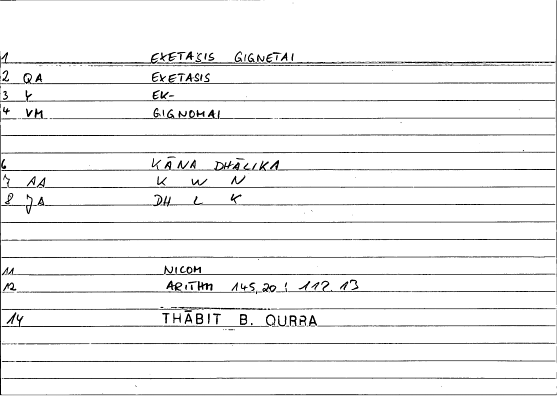 1 EXETASIS GIGNETAI
2 QA EXETASIS
3 EK-
4 VM GIGNOMAI
6 KĀNA DHĀLIKA
7 AA K W N
8 JA DH L K
11 NICOM
12 ARITHM 145,20 : 112.13
14 THĀBIT B. QURRA